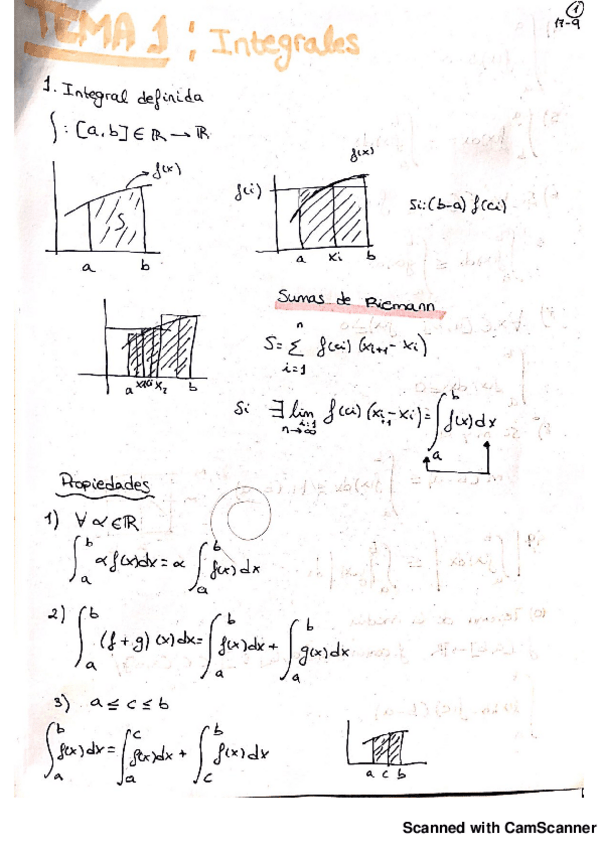 1
17-9
TEMA 1: Integrales
1. Integral definida
∫: [a,b] ∈ ℝ → ℝ
f(x)
S
a b
f(x)
f(ci)
a xi b
Si: (b-a) f(ci)
a x1 ci x2 b
Sumas de Riemann
S = Σ_{i=1}^{n} f(ci) (xi+1 - xi)
Si ∃ lim_{n→∞} i=1 f(ci) (xi+1 - xi) = ∫_a^b f(x) dx
Propiedades
1) ∀ α ∈ ℝ
∫_a^b α f(x) dx = α ∫_a^b f(x) dx
2) ∫_a^b (f+g)(x) dx = ∫_a^b f(x) dx + ∫_a^b g(x) dx
3) a ≤ c ≤ b
∫_a^b f(x) dx = ∫_a^c f(x) dx + ∫_c^b f(x) dx
a c b
Scanned with CamScanner